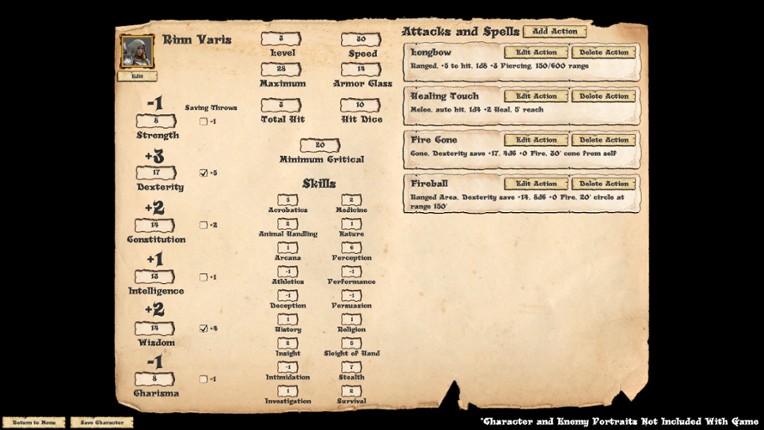 Rinn Varis
Edit
3
Level
30
Speed
28
Maximum
14
Armor Class
3
Total Hit
10
Hit Dice
20
Minimum Critical
-1
8
Strength
Saving Throws
-1
+3
17
Dexterity
+5
+2
14
Constitution
+2
+1
13
Intelligence
+1
+2
14
Wisdom
+4
-1
Charisma
-1
Skills
Acrobatics
Medicine
Animal Handling
1
Nature
1
Arcana
6
Perception
-1
Athletics
-1
Performance
-1
Deception
-1
Persuasion
1
History
1
Religion
Insight
Sleight of Hand
-1
Intimidation
7
Stealth
1
Investigation
2
Survival
Attacks and Spells
Add Action
Longbow
Edit Action
Delete Action
Ranged, +5 to hit, 1d8 +3 Piercing, 150/600 range
Healing Touch
Edit Action
Delete Action
Melee, auto hit, 1d4 +2 Heal, 5' reach
Fire Cone
Edit Action
Delete Action
Cone, Dexterity save +17, 4d6 +0 Fire, 30' cone from self
Fireball
Edit Action
Delete Action
Ranged Area, Dexterity save +14, 8d6 +0 Fire, 20' circle at
range 150'
Return to Menu
Save Character
*Character and Enemy Portraits Not Included With Game